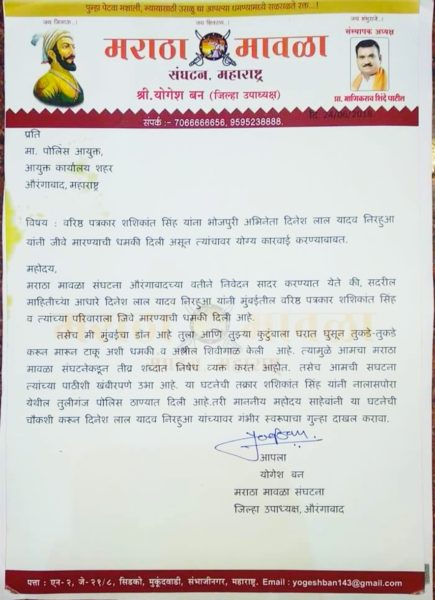 पुन्हा पेटवा मशाली, न्यायासाठी उसळू द्या आपल्या धमण्यामध्ये सळसळते रक्त...!
जय जिजाऊ...!
जय शिवराय...!
जय शंभुराजे...!
मराठा मावळा
संघटन, महाराष्ट्र
श्री.योगेश बन (जिल्हा उपाध्यक्ष)
संस्थापक अध्यक्ष
प्रा. माणिकराव शिंदे पाटील
संपर्क :- 7066666656, 9595238888.
दि. 24/08/2018
प्रति
मा. पोलिस आयुक्त,
आयुक्त कार्यालय शहर
औरंगाबाद, महाराष्ट्र
विषय : वरिष्ठ पत्रकार शशिकांत सिंह यांना भोजपुरी अभिनेता दिनेश लाल यादव निरहुआ
यांनी जीवे मारण्याची धमकी दिली असून त्यांचावर योग्य कारवाई करण्याबाबत.
महोदय,
मराठा मावळा संघटना औरंगाबादच्या वतीने निवेदन सादर करण्यात येते की, सदरील
माहितीच्या आधारे दिनेश लाल यादव निरहुआ यांनी मुंबईतील वरिष्ठ पत्रकार शशिकांत सिंह
व त्यांच्या परिवाराला जिवे मारण्याची धमकी दिली आहे.
तसेच मी मुंबईचा डॉन आहे तुला आणि तुझ्या कुटुंबाला घरात घुसून तुकडे-तुकडे
करून मारून टाकू अशी धमकी व अश्लील शिवीगाळ केली आहे. त्यामुळे आमचा मराठा
मावळा संघटनेकडून तीव्र शब्दांत निषेध व्यक्त करत आहोत. तसेच आमची संघटना
त्यांच्या पाठीशी खंबीरपणे उभा आहे. या घटनेची तक्रार शशिकांत सिंह यांनी नालासपोरा
येथील तुलीगंज पोलिस ठाण्यात दिली आहे.तरी माननीय महोदय साहेबांनी या घटनेची
चौकशी करून दिनेश लाल यादव निरहुआ यांच्यावर गंभीर स्वरूपाचा गुन्हा दाखल करावा.
आपला
योगेश बन
मराठा मावळा संघटना
जिल्हा उपाध्यक्ष, औरंगाबाद
पत्ता : एन-२, जे-२१/८, सिडको, मुकुंदवाडी, संभाजीनगर, महाराष्ट्र. Email : yogeshban143@gmail.com